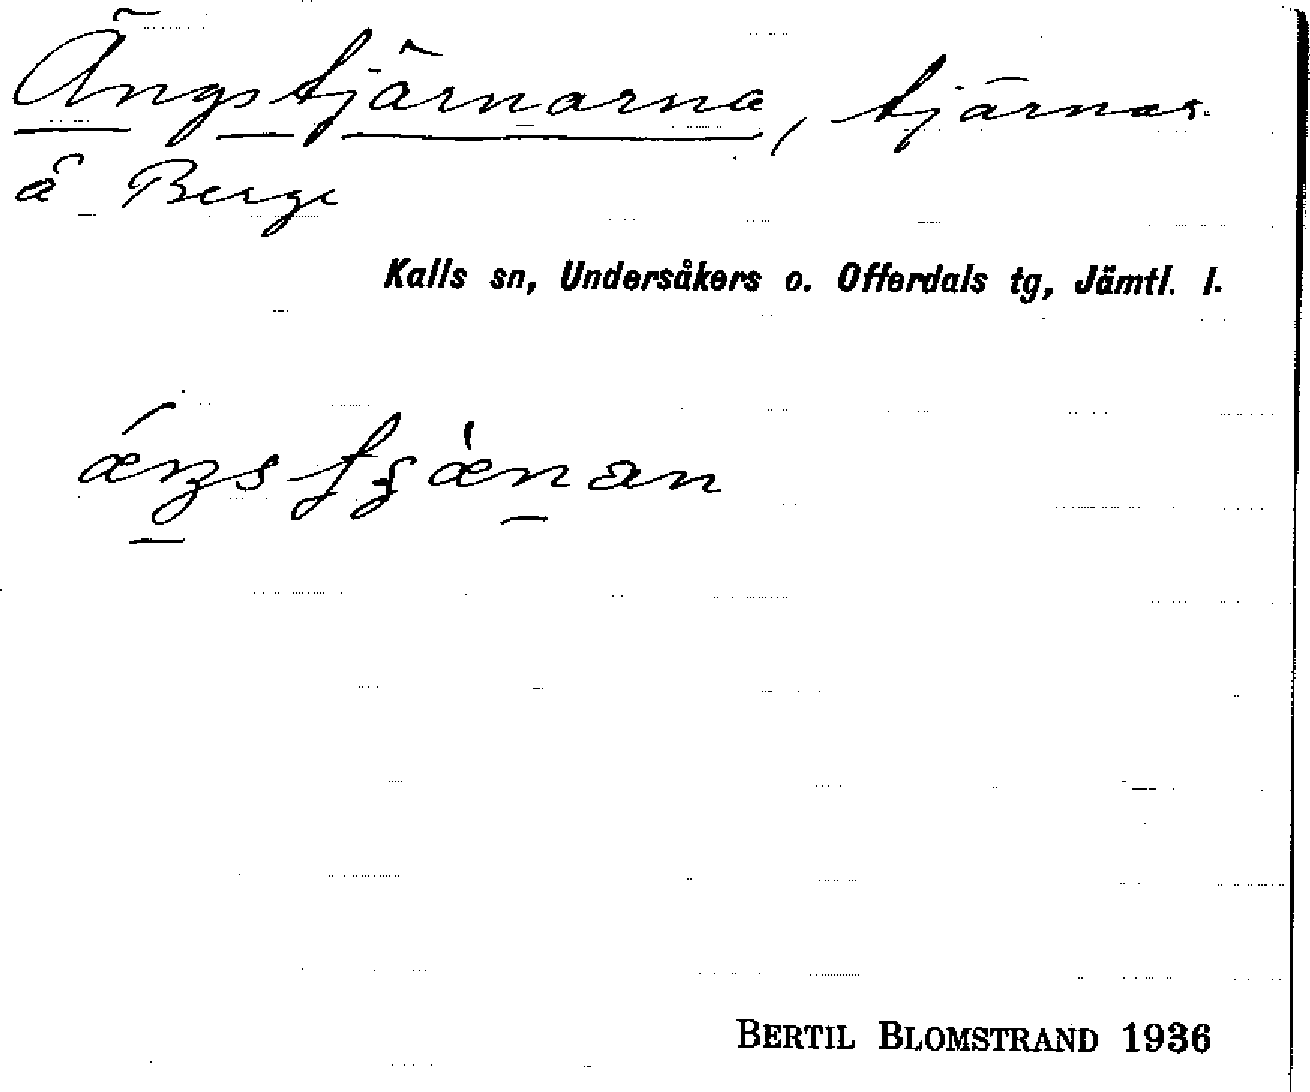 Ängstjärnarna, tjärnar
å Berge
Kalls sn, Undersåkers o. Offerdals tg, Jämtl. l.
BERTIL BLOMSTRAND 1936